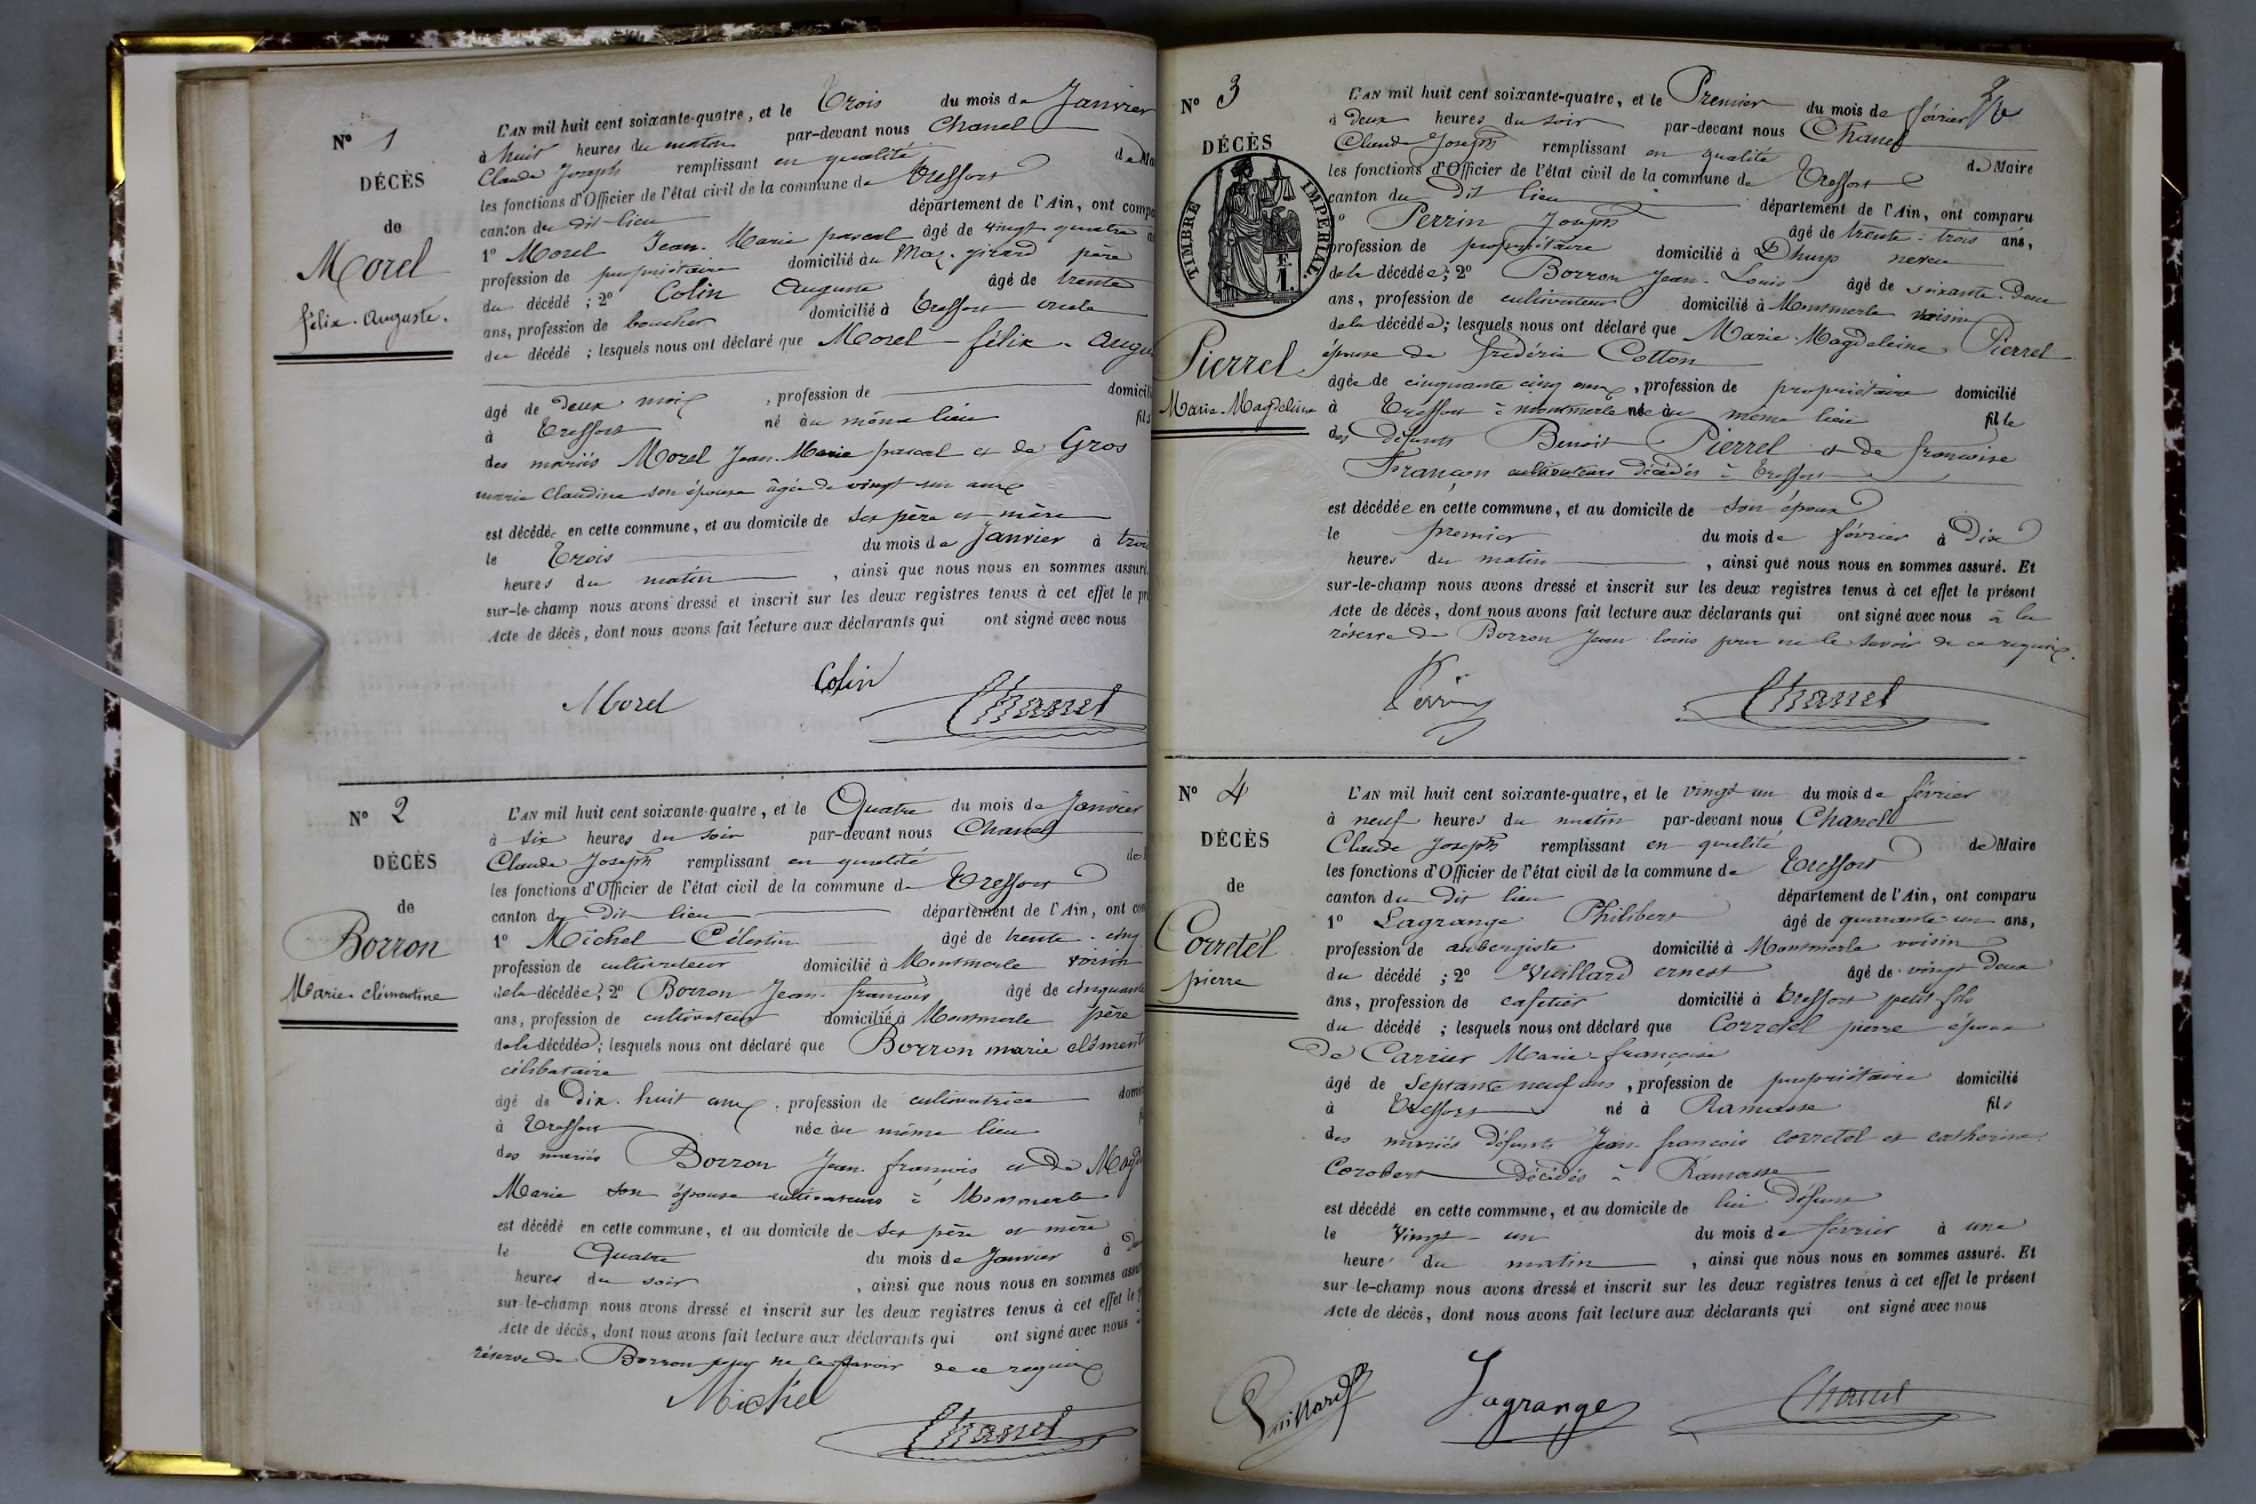 N° 1
DÉCÈS
de
Morel
félix. Auguste.
L'AN mil huit cent soixante-quatre, et le Trois du mois de Janvier
à huit heures du matin par-devant nous Chanel
Claude Joseph remplissant en qualité de Ma
les fonctions d'Officier de l'état civil de la commune de Treffort
canton du dit lieu département de l'Ain, ont compa
1° Morel Jean. Marie pascal âgé de vingt quatre a
profession de propriétaire domicilié au Maz. girard père
du décédé ; 2° Colin Auguste âgé de trente
ans, profession de boucher domicilié à Treffort oncle
du décédé ; lesquels nous ont déclaré que Morel félix. Augu
âgé de deux mois , profession de domicili
à Treffort né au même lieu fils
des mariés Morel Jean. Marie pascal et de Gros
marie Claudine son épouse âgée de vingt un ans
est décédé en cette commune, et au domicile de ses père et mère
le Trois du mois de Janvier à troi
heures du matin , ainsi que nous nous en sommes assuré.
sur-le-champ nous avons dressé et inscrit sur les deux registres tenus à cet effet le pr
Acte de décès, dont nous avons fait lecture aux déclarants qui ont signé avec nous
Morel Colin Chanel
N° 2
DÉCÈS
de
Borron
Marie. clémentine
L'AN mil huit cent soixante-quatre, et le Quatre du mois de Janvier
à six heures du soir par-devant nous Chanel
Claude Joseph remplissant en qualité de
les fonctions d'Officier de l'état civil de la commune de Treffort
canton du dit lieu département de l'Ain, ont com
1° Michel Célestin âgé de trente. cinq
profession de cultivateur domicilié à Montmerle voisin
de la décédée; 2° Borron Jean. françois âgé de cinquante
ans, profession de cultivateur domicilié à Montmerle père
de la décédée; lesquels nous ont déclaré que Borron marie clément
célibataire
âgé de Dix. huit ans , profession de cultivatrice domici
à Treffort née au même lieu
des mariés Borron Jean. françois et de Magd
Marie son épouse cultivateurs à Montmerle
est décédé en cette commune, et au domicile de ses père et mère
le Quatre du mois de Janvier à
heures du soir , ainsi que nous nous en sommes assur
sur-le-champ nous avons dressé et inscrit sur les deux registres tenus à cet effet le
Acte de décès, dont nous avons fait lecture aux déclarants qui ont signé avec nous à
réserve de Borron pour ne le savoir de ce requis
Michel
Chanel
N° 3
DÉCÈS
TIMBRE IMPÉRIAL.
F.
1.
Pierrel
Marie. Magdeleine
L'AN mil huit cent soixante-quatre, et le Premier du mois de février
à deux heures du soir par-devant nous Chanel
Claude Joseph remplissant en qualité de Maire
les fonctions d'Officier de l'état civil de la commune de Treffort
canton du dit lieu département de l'Ain, ont comparu
1° Perrin Joseph âgé de trente. trois ans,
profession de propriétaire domicilié à Dhuys neveu
de la décédée; 2° Borron Jean. Louis âgé de soixante. Deux
ans, profession de cultivateur domicilié à Montmerle voisin
de la décédée; lesquels nous ont déclaré que Marie. Magdeleine Pierrel
épouse de frédéric Cotton
âgée de cinquante cinq ans , profession de propriétaire domicilié
à Treffort à montmerle née au même lieu fille
des défunts Benoit Pierrel et de françoise
Françon cultivateurs décédés à Treffort
est décédée en cette commune, et au domicile de son époux
le premier du mois de février à Dix
heures du matin , ainsi que nous nous en sommes assuré. Et
sur-le-champ nous avons dressé et inscrit sur les deux registres tenus à cet effet le présent
Acte de décès, dont nous avons fait lecture aux déclarants qui ont signé avec nous à la
réserve de Borron Jean louis pour ne le savoir de ce requis.
Perrin Chanel
N° 4
DÉCÈS
de
Corretel
pierre
L'AN mil huit cent soixante-quatre, et le vingt un du mois de février
à neuf heures du matin par-devant nous Chanel
Claude Joseph remplissant en qualité de Maire
les fonctions d'Officier de l'état civil de la commune de Treffort
canton du dit lieu département de l'Ain, ont comparu
1° Lagrange Philibert âgé de quarante-un ans,
profession de aubergiste domicilié à Montmerle voisin
du décédé ; 2° Vuillard ernest âgé de vingt Deux
ans, profession de cafetier domicilié à Treffort petit-fils
du décédé ; lesquels nous ont déclaré que Corretel pierre époux
de Carrier Marie-françoise
âgé de Septante neuf ans , profession de propriétaire domicilié
à Treffort né à Ramasse fils
des mariés défunts Jean. françois corretel et catherine.
Corobert décédés à Ramasse
est décédé en cette commune, et au domicile de lui défunt
le Vingt-un du mois de février à une
heure du matin , ainsi que nous nous en sommes assuré. Et
sur-le-champ nous avons dressé et inscrit sur les deux registres tenus à cet effet le présent
Acte de décès, dont nous avons fait lecture aux déclarants qui ont signé avec nous
Vuillard Lagrange Chanel